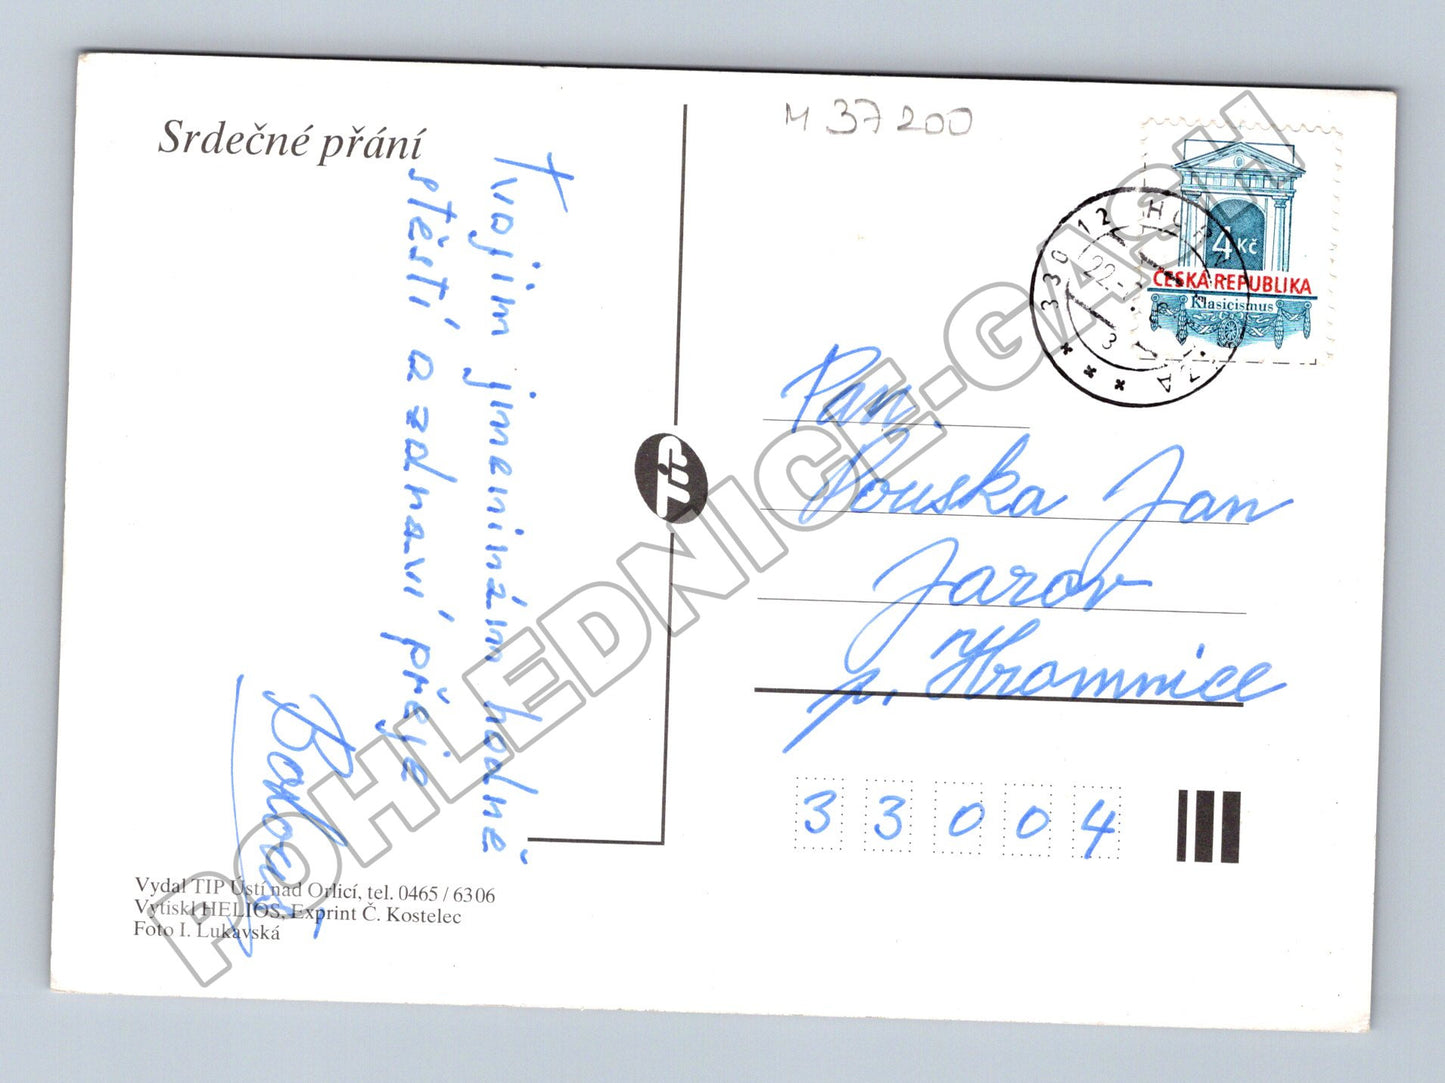 Srdečné přání
k Tvojim jmeninám hodně
štěstí a zdraví přeje
M 37200
4 Kč
ČESKÁ REPUBLIKA
Klasicismus
330 12
22.
TIP
Pan
Souska Jan
Jarov
p. Hromnice
33004
Vydal TIP Ústí nad Orlicí, tel. 0465 / 6306
Vytiskl HELIOS, Exprint Č. Kostelec
Foto I. Lukavská
POHLEDNICE-GASH